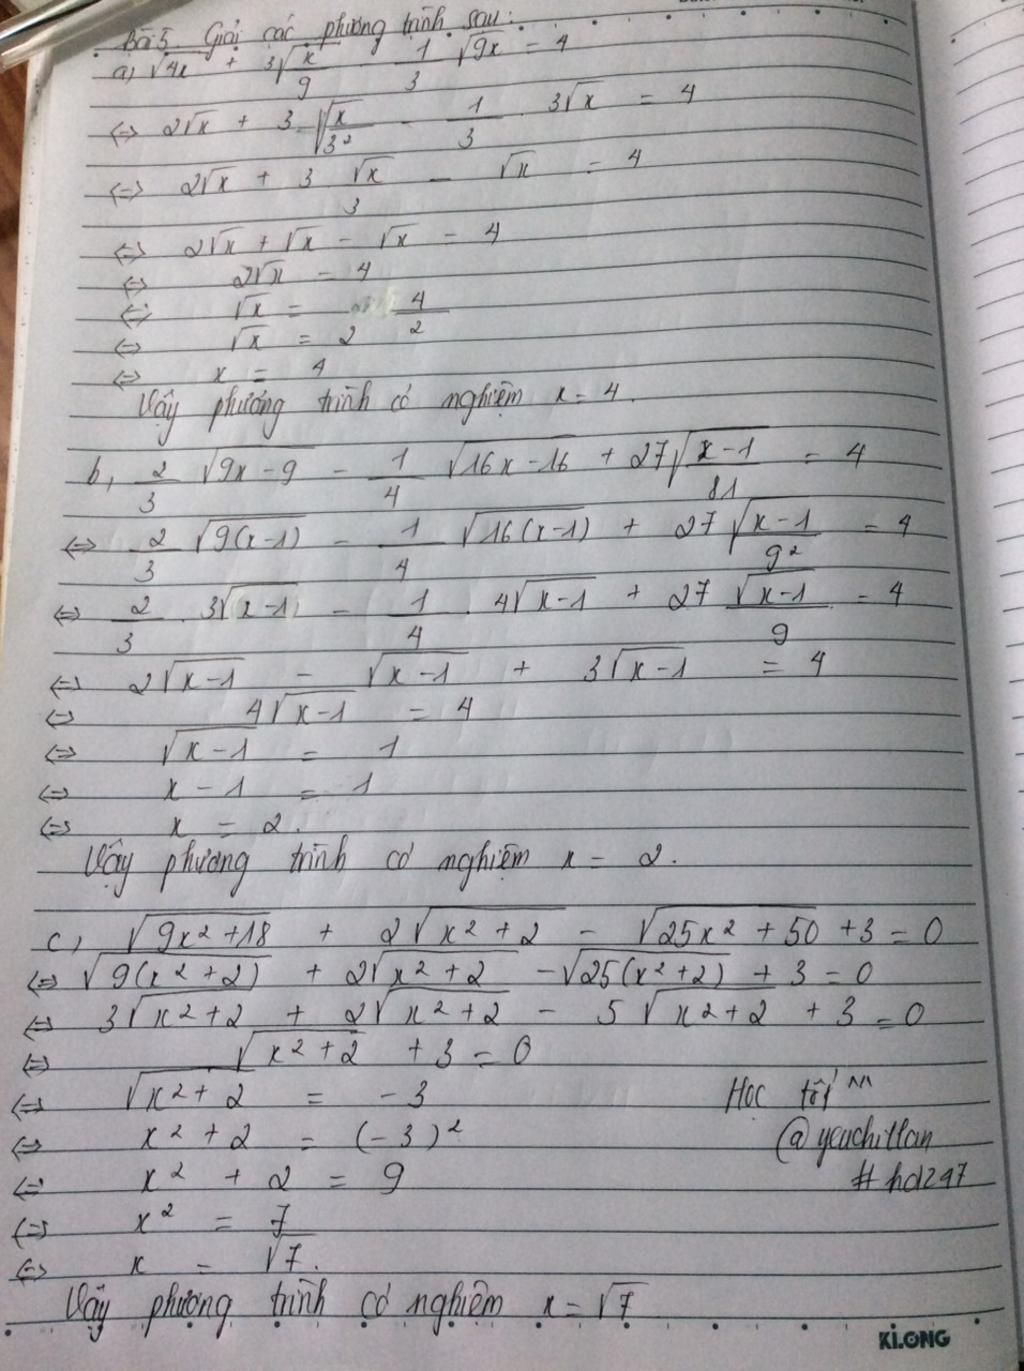 Bài 5. Giải các phương trình sau:
a, √4x + 3√(x/9) - 1/3 √9x = 4
<=> 2√x + 3 . √(x/3²) - 1/3 . 3√x = 4
<=> 2√x + 3 √x/3 - √x = 4
<=> 2√x + √x - √x = 4
<=> 2√x = 4
<=> √x = 4/2
<=> √x = 2
<=> x = 4
Vậy phương trình có nghiệm x = 4.
b, 2/3 √(9x-9) - 1/4 √(16x-16) + 27√((x-1)/81) = 4
<=> 2/3 √(9(x-1)) - 1/4 √(16(x-1)) + 27 √((x-1)/9²) = 4
<=> 2/3 . 3√(x-1) - 1/4 . 4√(x-1) + 27 √(x-1)/9 = 4
<=> 2√(x-1) - √(x-1) + 3√(x-1) = 4
<=> 4√(x-1) = 4
<=> √(x-1) = 1
<=> x - 1 = 1
<=> x = 2.
Vậy phương trình có nghiệm x = 2.
c, √(9x²+18) + 2√(x²+2) - √(25x²+50) + 3 = 0
<=> √(9(x²+2)) + 2√(x²+2) - √(25(x²+2)) + 3 = 0
<=> 3√(x²+2) + 2√(x²+2) - 5√(x²+2) + 3 = 0
<=> √(x²+2) + 3 = 0
<=> √(x²+2) = -3
Học tốt ^^
<=> x² + 2 = (-3)²
<=> x² + 2 = 9
#hd247
<=> x² = 7
<=> x = √7.
Vậy phương trình có nghiệm x = √7
KLONG